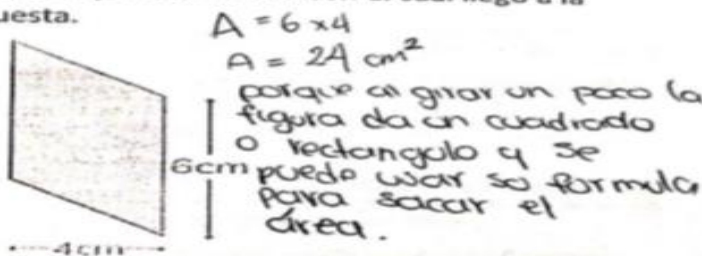 uesta.
A = 6 x 4
A = 24 cm²
porque al girar un poco la
figura da un cuadrado
o rectangulo y se
6cm puede usar so formula
para sacar el
área.
4cm